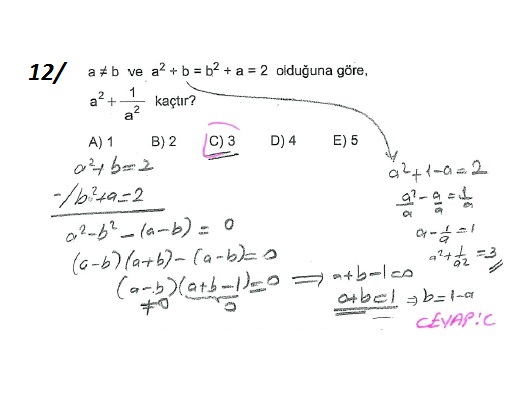 12/ a ≠ b ve a² + b = b² + a = 2 olduğuna göre,
a² + 1/a² kaçtır?
A) 1 B) 2 C) 3 D) 4 E) 5
a²+b=2
-/b²+a=2
a²-b²-(a-b)=0
(a-b)(a+b)-(a-b)=0
(a-b)(a+b-1)=0 ⟹ a+b-1=0
≠0 0
a+b=1 ⇒ b=1-a
a²+1-a=2
a²/a - a/a = 1/a
a - 1/a = 1
a² + 1/a² = 3
CEVAP: C